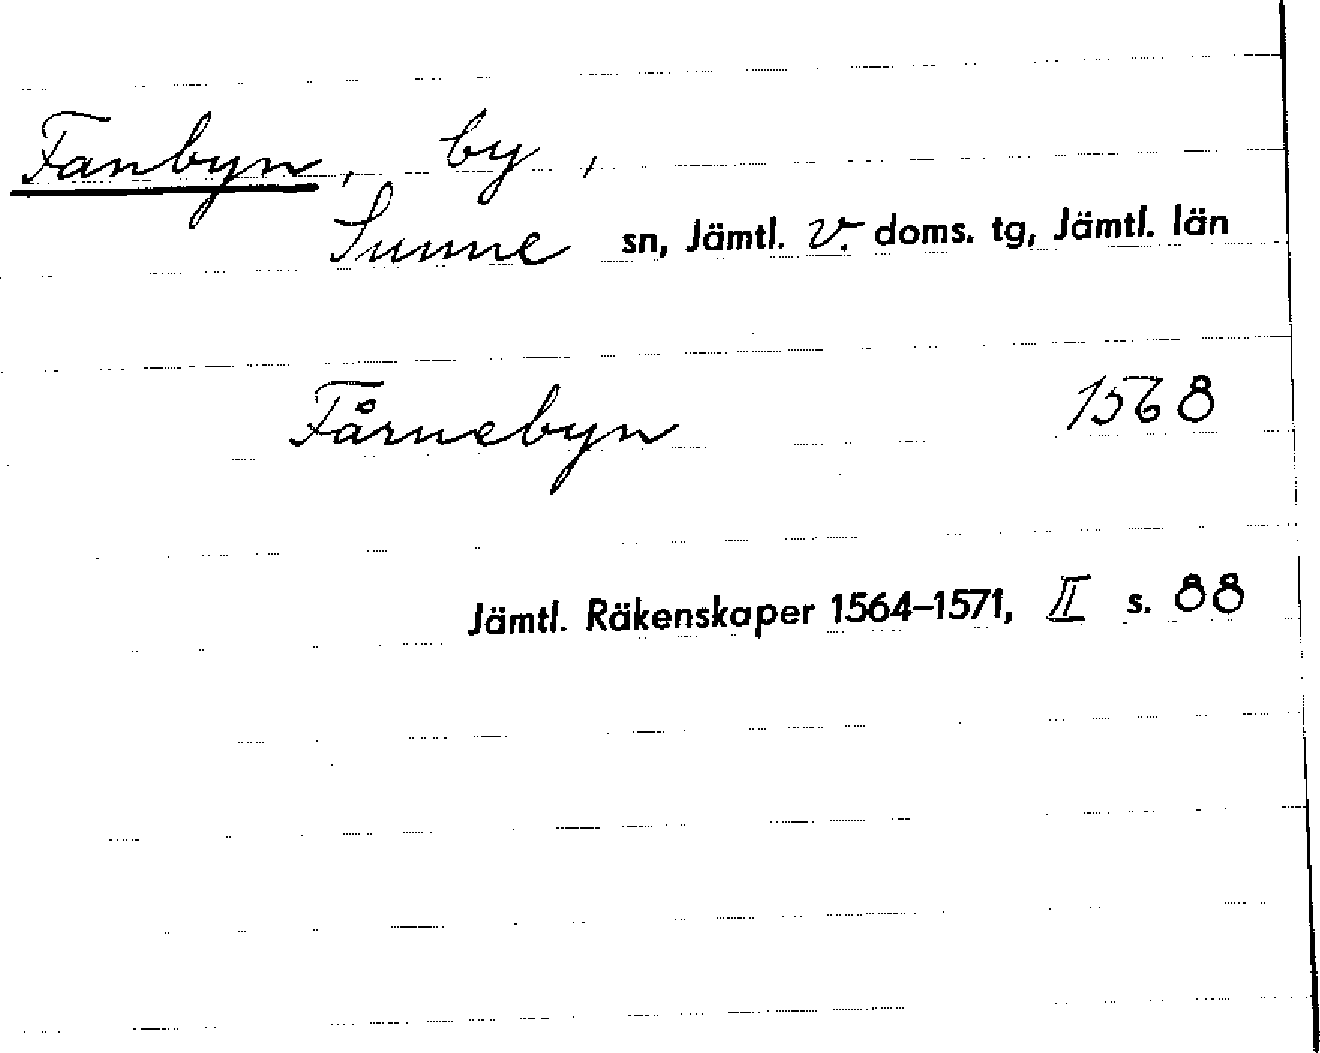 Fanbyn, by,
Sunne sn, Jämtl. v. doms. tg, Jämtl. län
Fårnebyn 1568
Jämtl. Räkenskaper 1564–1571, II s. 88